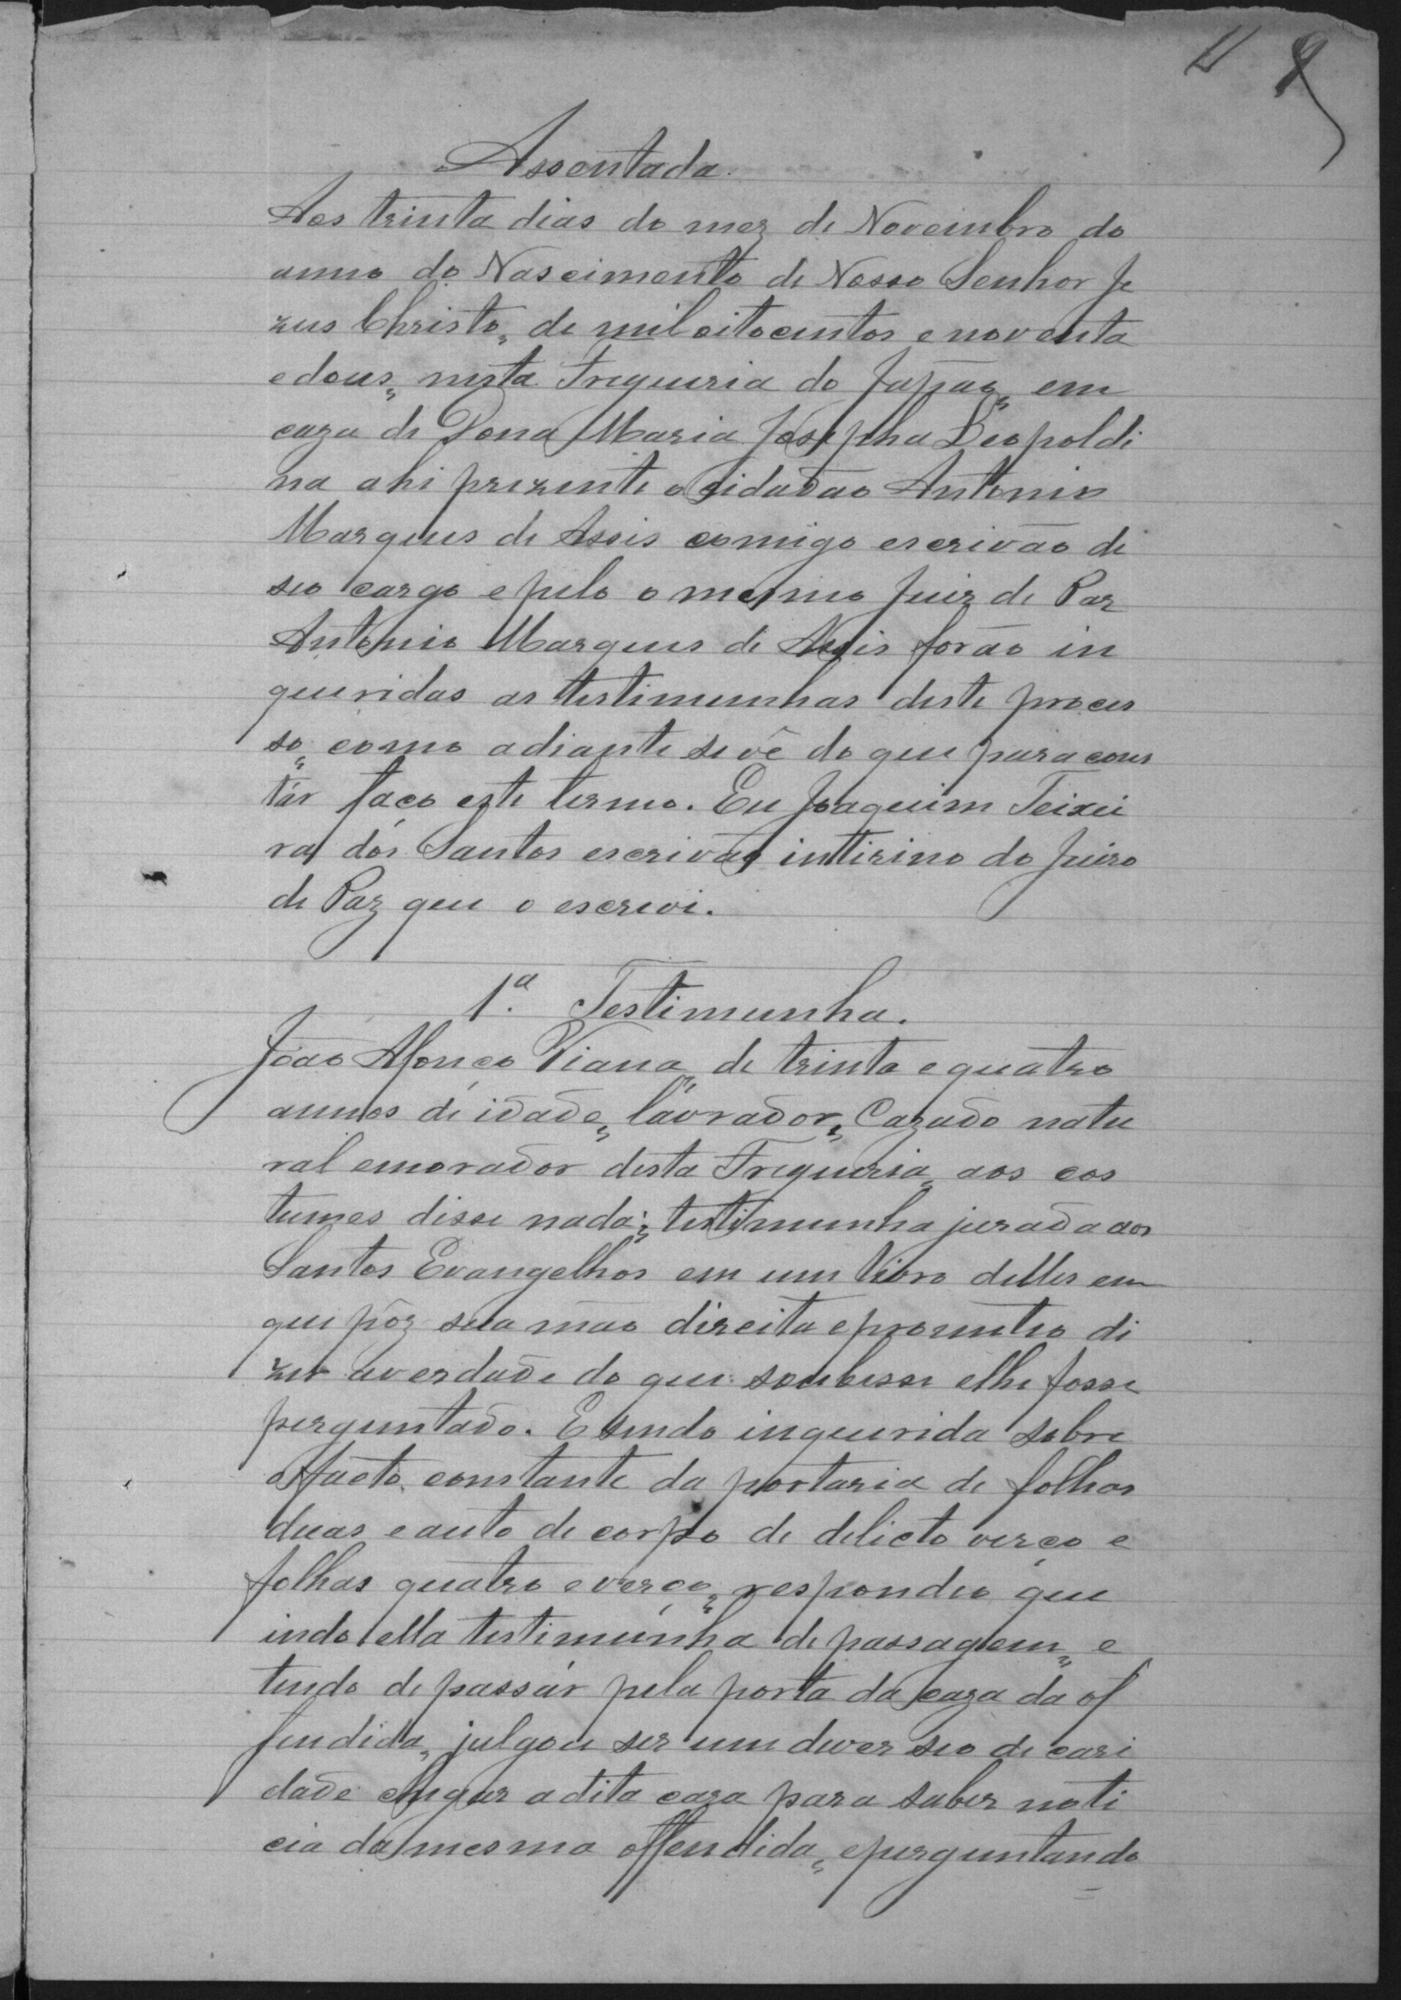 Assentada.
Aos trinta dias do mez de Novembro do
anno do Nascimento de Nosso Senhor Je
zus Christo, de mil oitocentos e noventa
e dous, nesta Freguezia do Japão, em
caza de Dona Maria Josepha Leopoldi
na ahi prezente o cidadão Antonio
Marques de Assis comigo escrivão di
seo cargo e pelo o mesmo Juiz de Paz
Antonio Marques de Assis forão in
queridas as testimunhas deste proces
so, como adiante se vê do que para cons
tár faço este termo. Eu Joaquim Teixei
ra dos Santos escrivão intirino do Juizo
de Paz que o escrevi.
1ª. Testimunha.
João Afonço Viana, de trinta e quatro
annos de idade, lavrador, Cazado natu
ral e morador desta Freguezia, aos cos
tumes disse nada; testimunha jurada aos
Santos Evangelhos em um livro delles em
que pôz sua mão direita e prometeo di
zer a verdade do que soubesse e lhe fosse
perguntado. E sendo inquerida sobre
o facto constante da portaria de folhas
duas e auto de corpo de delicto verço e
folhas quatro e verço, respondeo que
indo ella testimunha de passagem, e
tendo de passár pela porta da caza da of
fendida, julgou ser um dever seo de cari
dade chegar a dita caza para saber noti
cia da mesma offendida, e perguntando